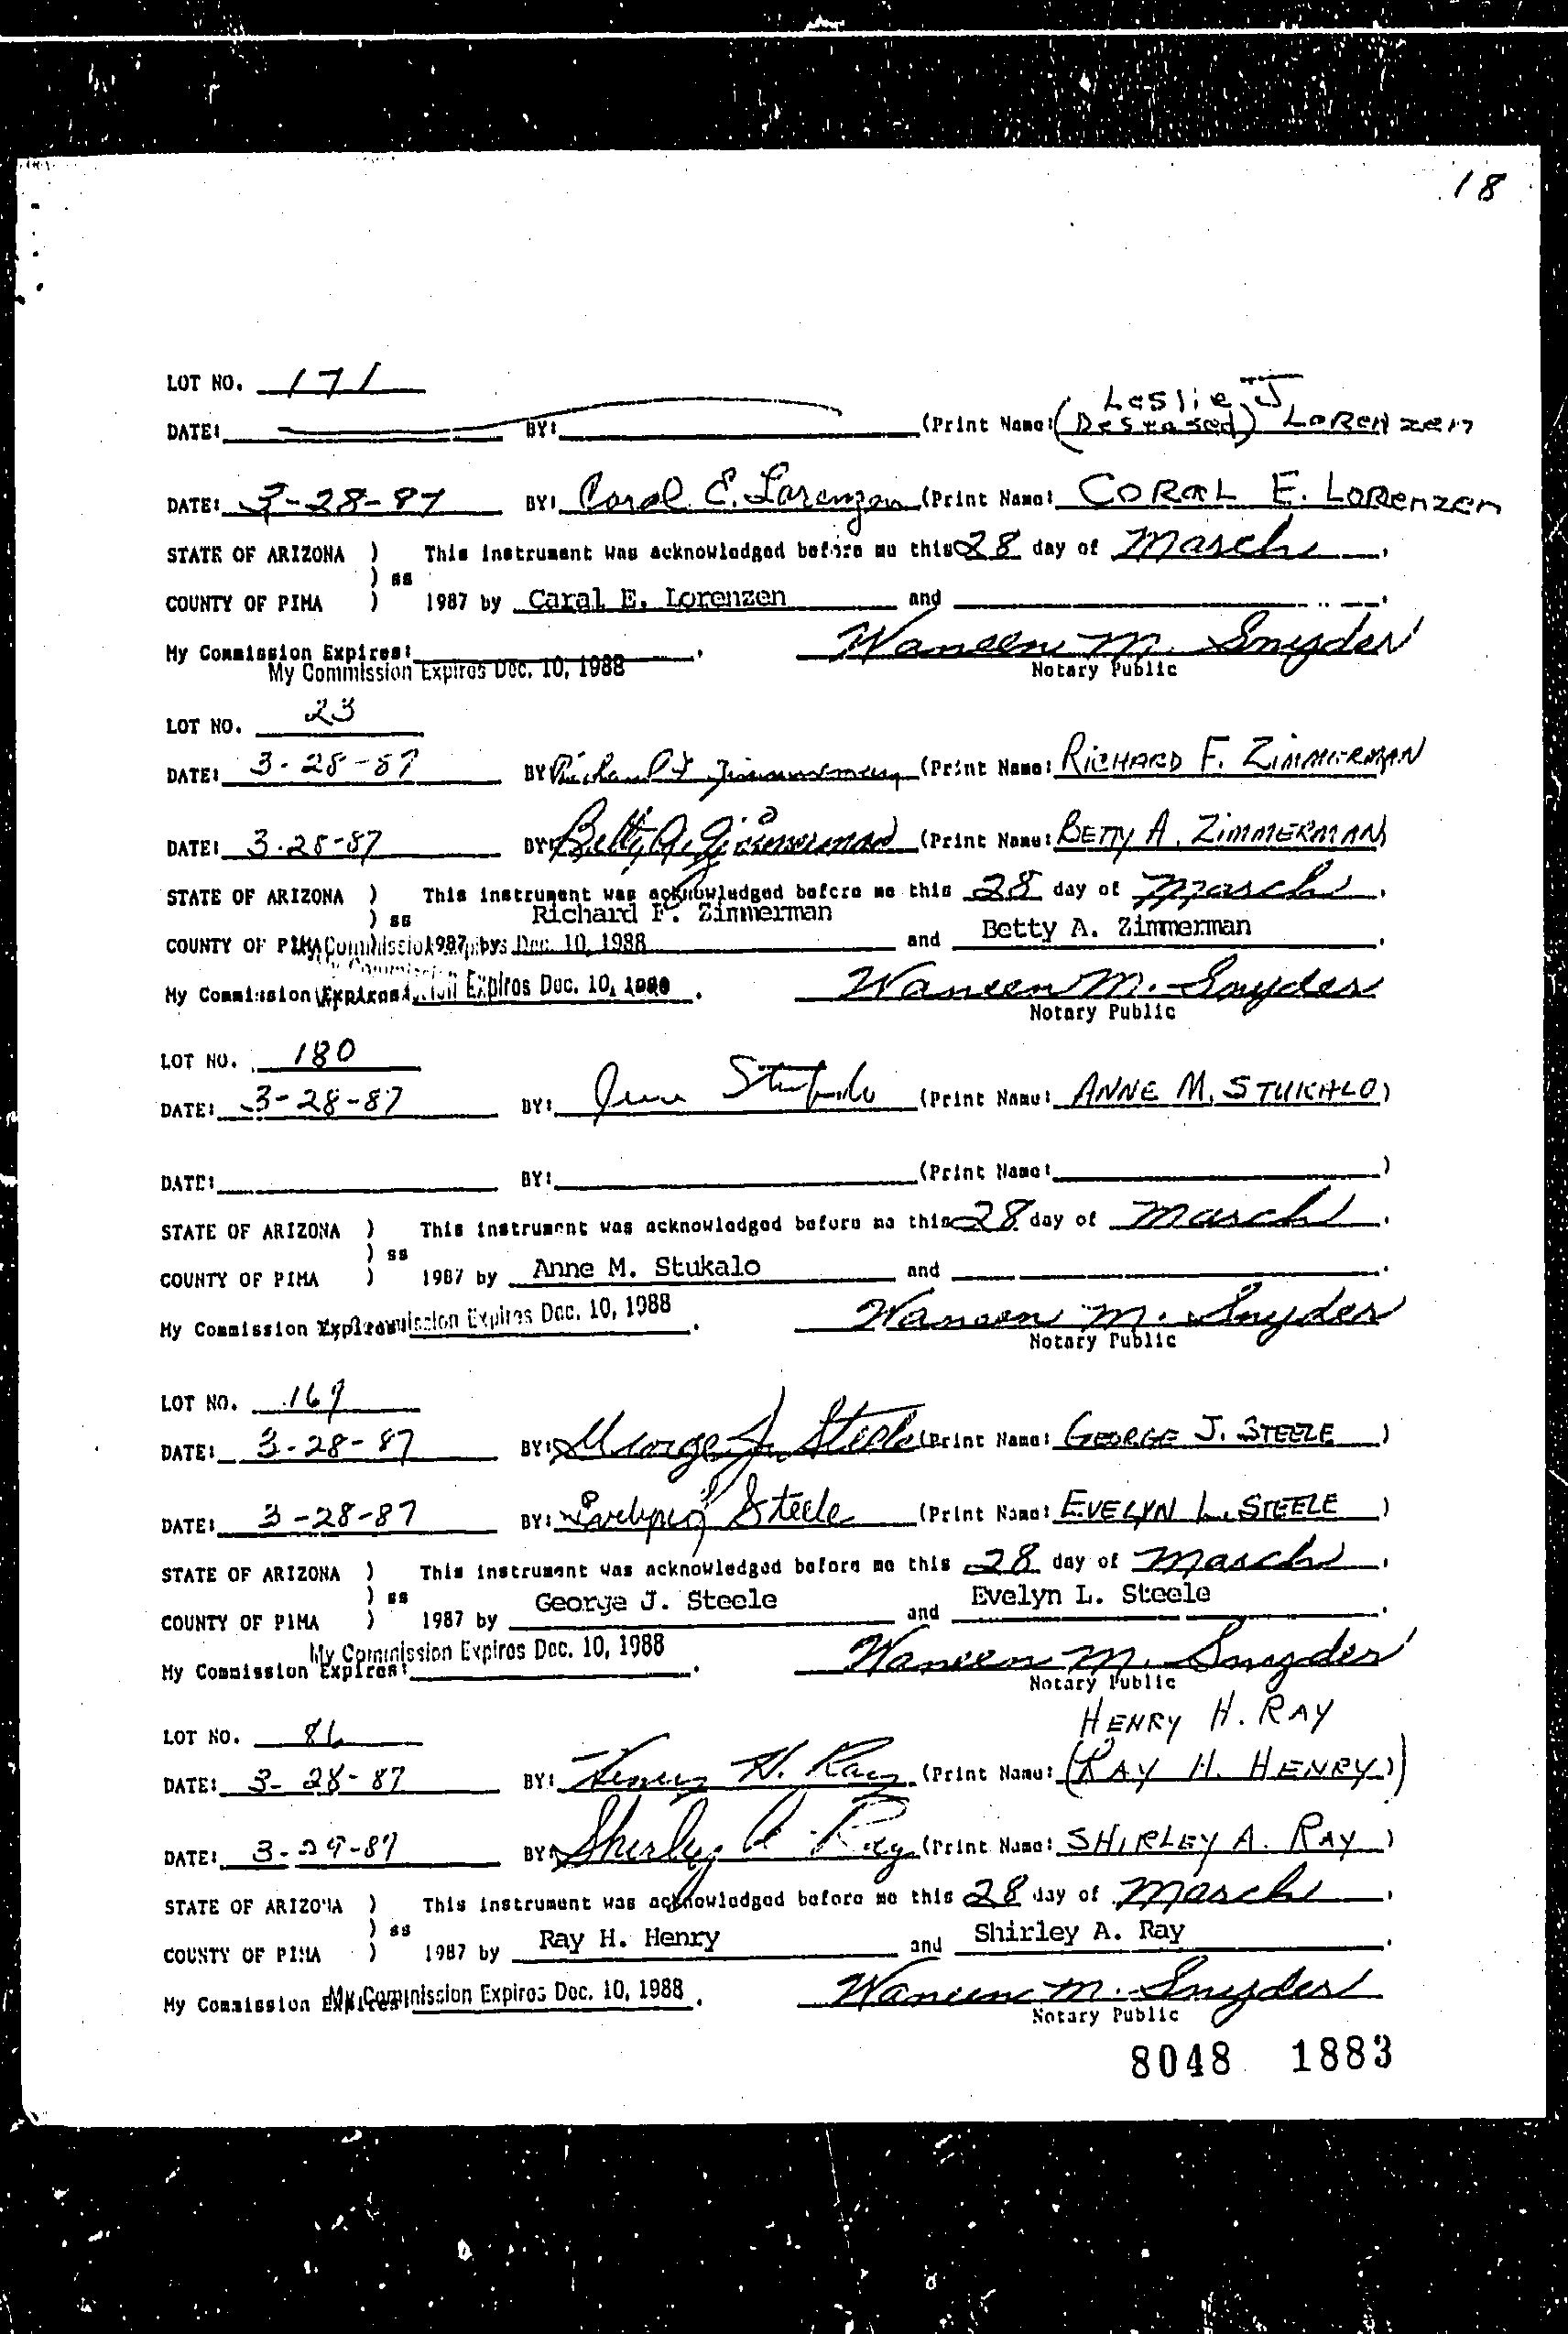 18
LOT NO. 171
DATE: BY: (Print Name: Leslie J
(Deseased) LORENZEN
DATE: 3-28-87 BY: Coral E. Lorenzen (Print Name: CORAL E. LORENZEN
STATE OF ARIZONA ) This instrument was acknowledged before me this 28 day of March,
) ss
COUNTY OF PIMA ) 1987 by Caral E. Lorenzen and .
Waneen M. Snyder
My Commission Expires: .
My Commission Expires Dec. 10, 1988 Notary Public
LOT NO. 23
DATE: 3-28-87 BY: Richard F Zimmerman (Print Name: RICHARD F. ZIMMERMAN
DATE: 3-28-87 BY: Betty A. Zimmerman (Print Name: BETTY A. ZIMMERMAN)
STATE OF ARIZONA ) This instrument was acknowledged before me this 28 day of March,
) ss Richard F. Zimmerman Betty A. Zimmerman
COUNTY OF PIMA ) 1987 by Dec. 10, 1988 and .
My Commission Expires Expires Dec. 10, 1988 . Waneen M. Snyder
Notary Public
LOT NO. 180
DATE: 3-28-87 BY: Stukalo (Print Name: ANNE M. STUKALO)
DATE: BY: (Print Name: )
STATE OF ARIZONA ) This instrument was acknowledged before me this 28 day of March,
) ss
COUNTY OF PIMA ) 1987 by Anne M. Stukalo and .
My Commission Expires Commission Expires Dec. 10, 1988 . Waneen M. Snyder
Notary Public
LOT NO. 169
DATE: 3-28-87 BY: George J. Steele (Print Name: GEORGE J. STEELE )
DATE: 3-28-87 BY: Evelyn L Steele (Print Name: EVELYN L. STEELE )
STATE OF ARIZONA ) This instrument was acknowledged before me this 28 day of March,
) ss George J. Steele Evelyn L. Steele
COUNTY OF PIMA ) 1987 by and .
My Commission Expires Dec. 10, 1988 Waneen M. Snyder
My Commission Expires: . Notary Public
HENRY H. RAY
LOT NO. 86
DATE: 3-28-87 BY: Henry H. Ray (Print Name: (RAY H. HENRY))
DATE: 3-29-87 BY: Shirley A Ray (Print Name: SHIRLEY A. RAY )
STATE OF ARIZONA ) This instrument was acknowledged before me this 28 day of March,
) ss Ray H. Henry Shirley A. Ray
COUNTY OF PIMA ) 1987 by and .
My Commission Expires My Commission Expires Dec. 10, 1988 . Waneen M. Snyder
Notary Public
8048 1883